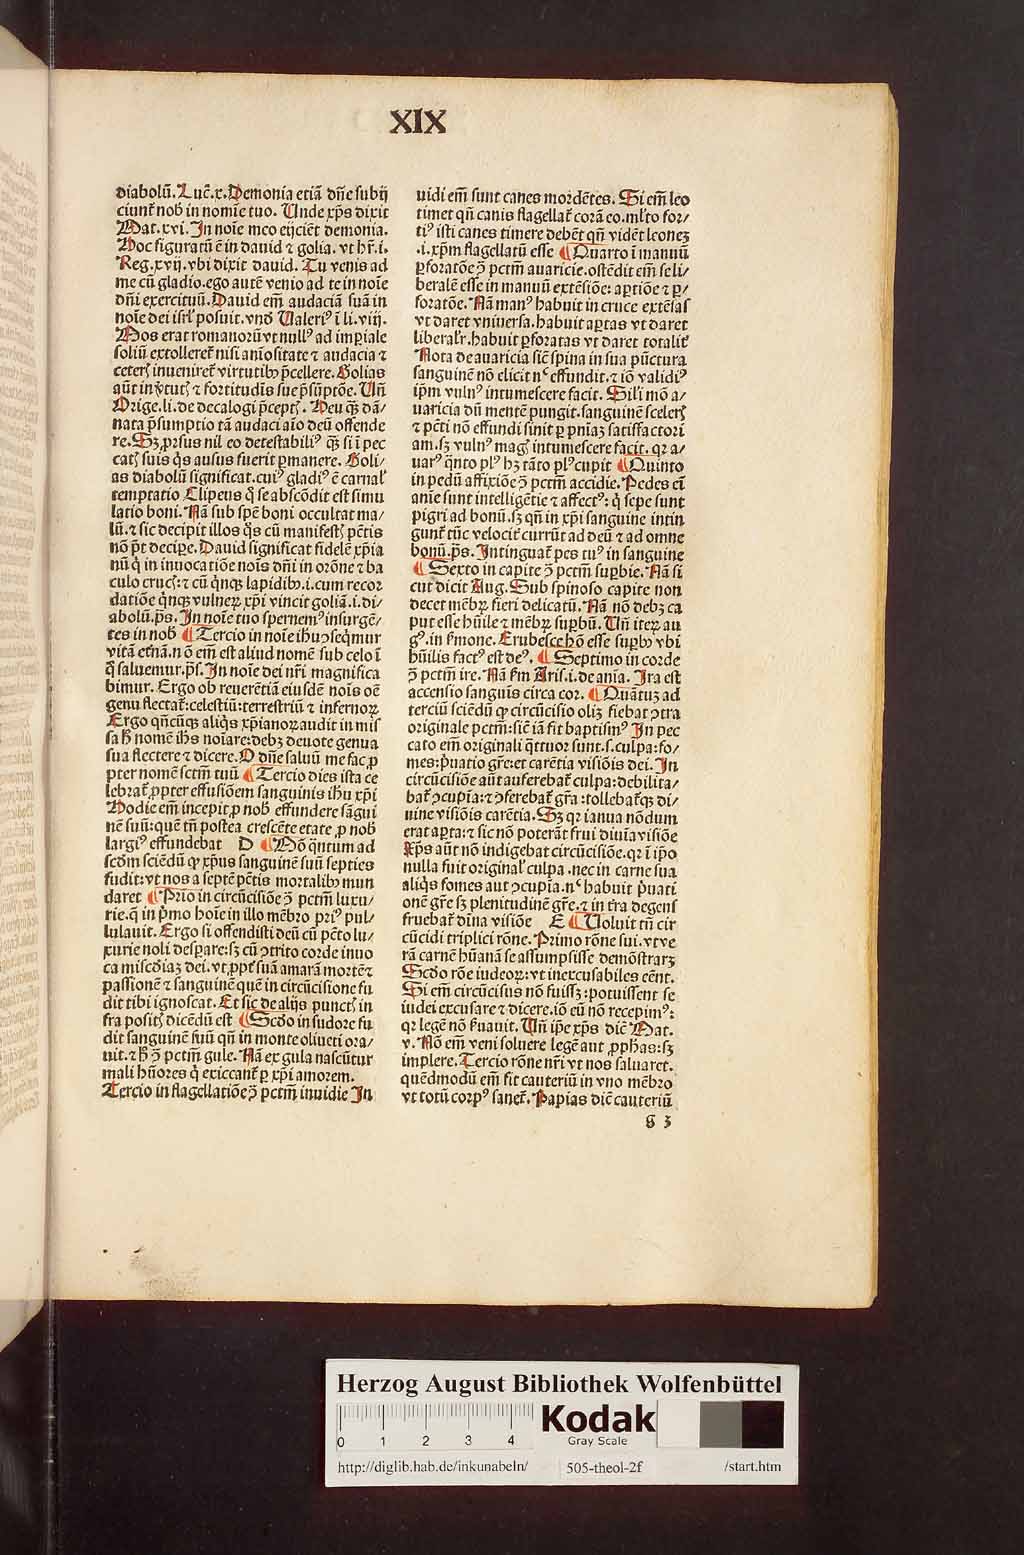 XIX
diabolū. Luc̄.x. Demonia etiā dn̄e subij
ciunt᷑ nob̄ in nomīe tuo. Unde xp̄s dixit
Mat.xvi. In noīe meo eijciēt demonia.
Hoc figuratū ē in dauid ⁊ golia. vt hr̄.i.
Reg.xvij. vbi dixit dauid. Tu venis ad
me cū gladio. ego autē venio ad te in noīe
dn̄i exercituū. Dauid em̄ audaciā suā in
noīe dei isrl̓ posuit. vnō Valeriꝰ ī li.viij.
Mos erat romanorū vt nullꝰ ad imꝑiale
soliū extolleret᷑ nisi aīositate ⁊ audacia ⁊
ceterꝭ inueniret᷑ virtutibꝫ p̄cellere. Golias
aūt in v̓tutꝭ ⁊ fortitudīs sue p̄sūptōe. Un̄
Orige.li.de decalogi p̄ceptꝭ. Heu qꝫ dā/
nata p̄sumptio tā audaci aīo deū offende
re. Sꝫ ꝓrsus nil eo detestabiliꝰ qꝫ si ī pec
catꝭ suis q̄s ausus fuerit ꝑmanere. Goli/
as diabolū significat. cuiꝰ gladiꝰ ē carnal̓
temptatio Clipeus q̄ se abscōdit est simu
latio boni. Nā sub spē boni occultat ma/
lū. ⁊ sic decipit illos q̄s cū manifestꝭ pc̄tis
nō pt̄ decipe. Dauid significat fidelē xp̄ia
nū q̄ in inuocatiōe noīs dn̄i in orōne ⁊ ba
culo crucꝭ: ⁊ cū q̄nqꝫ lapidibꝫ.i.cum recor
datiōe q̄nqꝫ vulneꝝ xp̄i vincit goliā.i.di/
abolū. ps̄. In noīe tuo spernemꝰ insurgē/
tes in nob̄ ¶ Tercio in noīe ihu ↄseq̄mur
vitā etnā. nō em̄ est aliud nomē sub celo ī
q̄ saluemur. ps̄. In noīe dei nr̄i magnifica
bimur. Ergo ob reuerētiā eiusdē noīs oē
genu flectat᷑: celestiū: terrestriū ⁊ infernoꝝ
Ergo qn̄cūqꝫ aliq̄s xp̄ianoꝝ audit in mis
sa h̄ nomē ihs̄ noīare: debꝫ deuote genua
sua flectere ⁊ dicere. O dn̄e saluū me fac ꝓ
pter nomē sctm̄ tuū ¶ Tercio dies ista ce
lebrat᷑ ꝓpter effusiōem sanguinis ihu xp̄i
Hodie em̄ incepit ꝓ nob̄ effundere sāgui
nē suū: quē tn̄ postea crescēte etate ꝓ nob̄
largiꝰ effundebat D ¶ Nō q̄ntum ad
scd̄m sciēdū ꝙ xp̄us sanguinē suū septies
fudit: vt nos a septē pc̄tis mortalibꝫ mun
daret ¶ Prīo in circūcisiōe ↄ̄ pctm̄ luxu/
rie. q̄ in p̓mo hoīe in illo mēbro priꝰ pul/
lulauit. Ergo si offendisti deū cū pc̄to lu/
xurie noli despare: sꝫ cū ↄtrito corde inuo
ca misc̄diaꝫ dei. vt ꝓpt᷑ suā amarā mortē ⁊
passionē ⁊ sanguinē quē in circūcisione fu
dit tibi ignoscat. Et sic de alijs punctꝭ in
fra positꝭ dicēdū est ¶ Scd̄o in sudore fu
dit sanguinē suū qn̄ in monte oliueti ora/
uit. ⁊ h̄ ↄ̄ pctm̄ gule. Nā ex gula nascūtur
mali hūores q̄ exiccant᷑ ꝑ xp̄i amorem.
Tercio in flagellatiōe ↄ̄ pctm̄ inuidie In
uidi em̄ sunt canes mordētes. Si em̄ leo
timet qn̄ canis flagellat᷑ corā eo. ml̓to for/
tiꝰ isti canes timere debēt qn̄ vidēt leoneꝫ
.i. xp̄m flagellatū esse ¶ Quarto ī manuū
ꝑforatōe ↄ̄ pctm̄ auaricie. ostēdit em̄ se li/
beralē esse in manuū extēsiōe: aꝑtiōe ⁊ ꝑ/
foratōe. Nā manꝰ habuit in cruce extēsas
vt daret vniuersa. habuit aꝑtas vt daret
liberalr̄. habuit ꝑforatas vt daret totalit᷑
Nota de auaricia sic̄ spina in sua pūctura
sanguinē nō elicit nᶜ effundit. ⁊ iō validiꝰ
ip̄m vulnꝰ intumescere facit. Sili mō a/
uaricia dū mentē pungit. sanguinē scelerꝭ
⁊ pc̄ti nō effundi sinit ꝑ pn̄iaꝫ satisfactori
am. sꝫ vulnꝰ magꝭ intumescere facit. qꝛ a/
uarꝰ q̄nto plꝰ hꝫ tāto plꝰ cupit ¶ Quinto
in pedū affixiōe ↄ̄ pctm̄ accidie. Pedes em̄
anīe sunt intelligētie ⁊ affectꝰ: q̄ sepe sunt
pigri ad bonū. sꝫ qn̄ in xp̄i sanguine intin
gunt᷑ tūc velocit᷑ currūt ad deū ⁊ ad omne
bonū. ps̄. Intinguat᷑ pes tuꝰ in sanguine
¶ Sexto in capite ↄ̄ pctm̄ suꝑbie. Nā si
cut dicit Aug. Sub spinoso capite non
decet mēbꝝ fieri delicatū. Nā nō debꝫ ca
put esse hūile ⁊ mēbꝝ suꝑbū. Un̄ iteꝝ au
gꝰ. in s̓mone. Erubesce hō esse suꝑbꝰ vbi
hūilis factꝰ est deꝰ. ¶ Septimo in corde
ↄ̄ pctm̄ ire. Nā s̓m Aris.i. de anīa. Ira est
accensio sanguīs circa cor. ¶ Quātuꝫ ad
terciū sciēdū ꝙ circūcisio olīꝫ fiebat ↄtra
originale pctm̄: sic̄ iā fit baptismꝰ In pec
cato em̄ originali q̄ttuor sunt. s. culpa: fo/
mes: p̓uatio gr̄e: et carētia visiōis dei. In
circūcisiōe aūt auferebat᷑ culpa: debilita/
bat᷑ ↄcupīa: ⁊ ↄferebat᷑ gr̄a: tollebat᷑qꝫ di/
uine visiōis carētia. Sꝫ qꝛ ianua nōdum
erat aꝑta: ⁊ sic nō poterāt frui diuīa visiōe
Xp̄s aūt nō indigebat circūcisiōe. qꝛ ī ip̄o
nulla fuit original̓ culpa. nec in carne sua
aliq̄s fomes aut ↄcupīa. nᶜ habuit p̓uati
onē gr̄e sꝫ plenitudinē gr̄e. ⁊ in tr̄a degens
fruebat᷑ dīna visiōe E ¶ Uoluit tn̄ cir
cūcidi triplici rōne. Primo rōne sui. vt ve
rā carnē hūanā se assumpsisse demōstraꝝ
Scd̄o rōe iudeoꝝ: vt inexcusabiles eēnt.
Si em̄ circūcisus nō fuissꝫ: potuissent se
iudei excusare ⁊ dicere. iō eū nō recepimꝰ:
qꝛ legē nō s̓uauit. Un̄ ip̄e xp̄s dic̄ Mat.
v. Nō em̄ veni soluere legē aut ꝓphas: sꝫ
implere. Tercio rōne nr̄i vt nos saluaret.
quēdmodū em̄ fit cauteriū in vno mēbro
vt totū corpꝰ sanet᷑. Papias dic̄ cauteriū
g 3
Herzog August Bibliothek Wolfenbüttel
0 1 2 3 4
Kodak
Gray Scale
http://diglib.hab.de/inkunabeln/ 505-theol-2f /start.htm